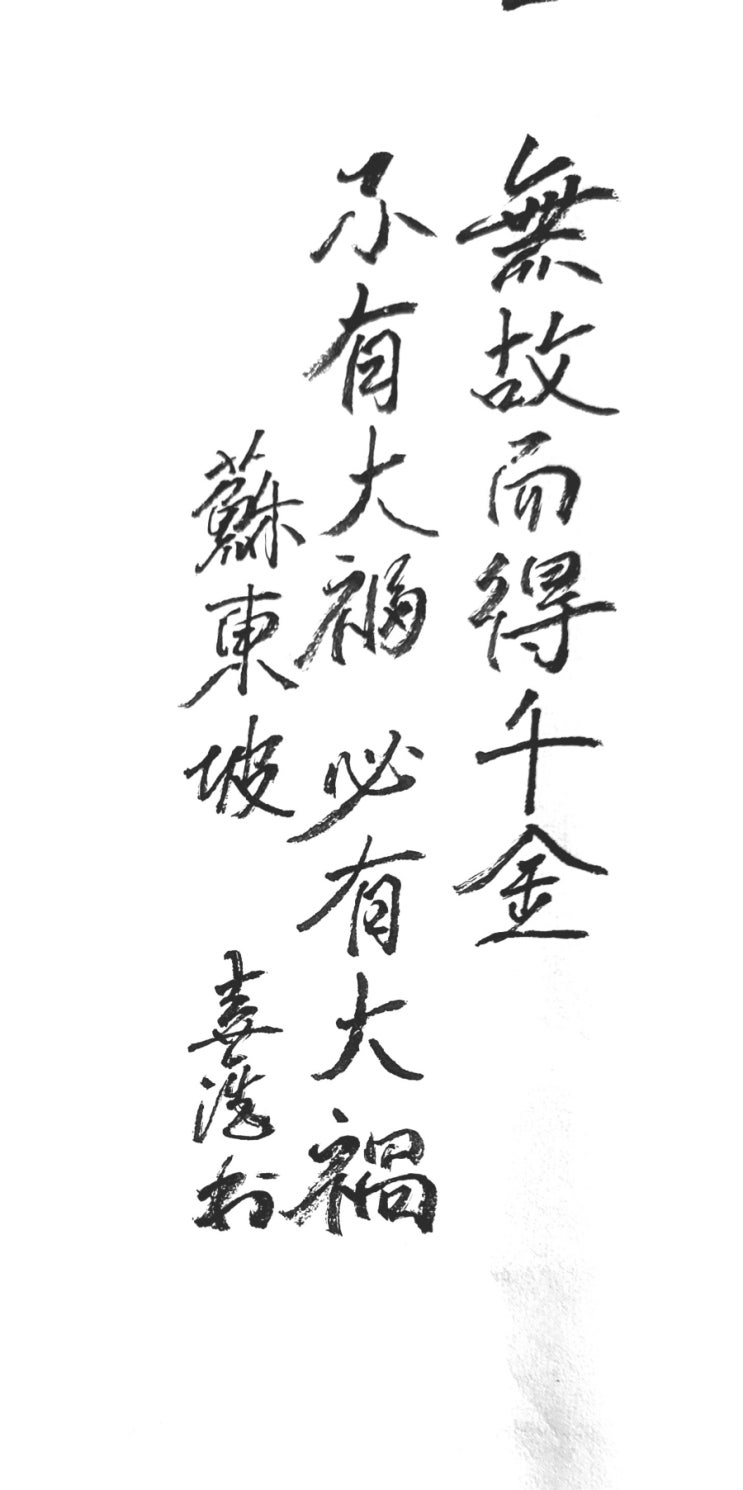 無故而得千金
不有大福必有大禍
蘇東坡